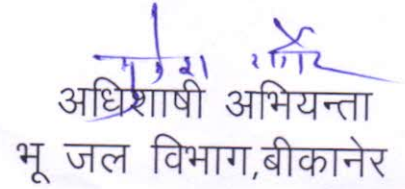 अधिशाषी अभियन्ता
भू जल विभाग,बीकानेर